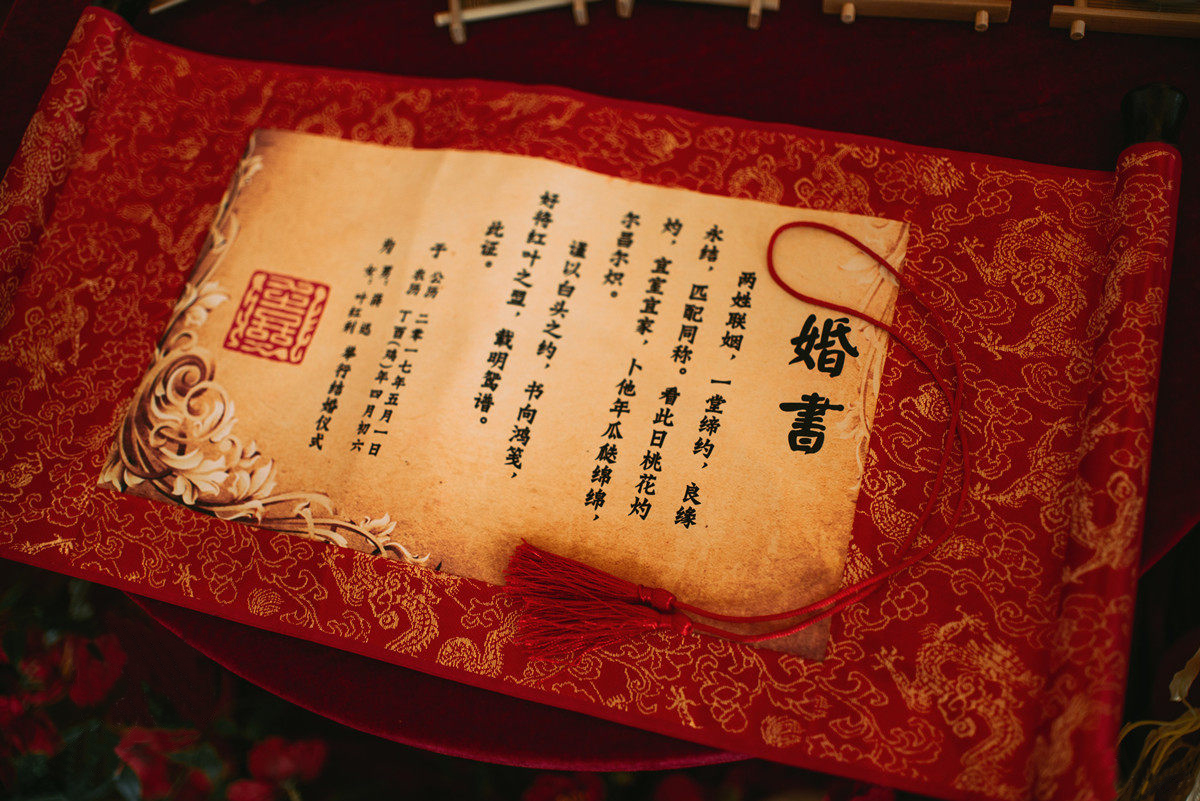 婚書
两姓联姻，一堂缔约，良缘
永结，匹配同称。看此日桃花灼
灼，宜室宜家，卜他年瓜瓞绵绵，
尔昌尔炽。
谨以白头之约，书向鸿笺，
好将红叶之盟，载明鸳谱。
此证。
于 公历 二零一七年五月一日
农历 丁酉(鸡)年四月初六
为 男：蒋
女：叶红利 举行结婚仪式